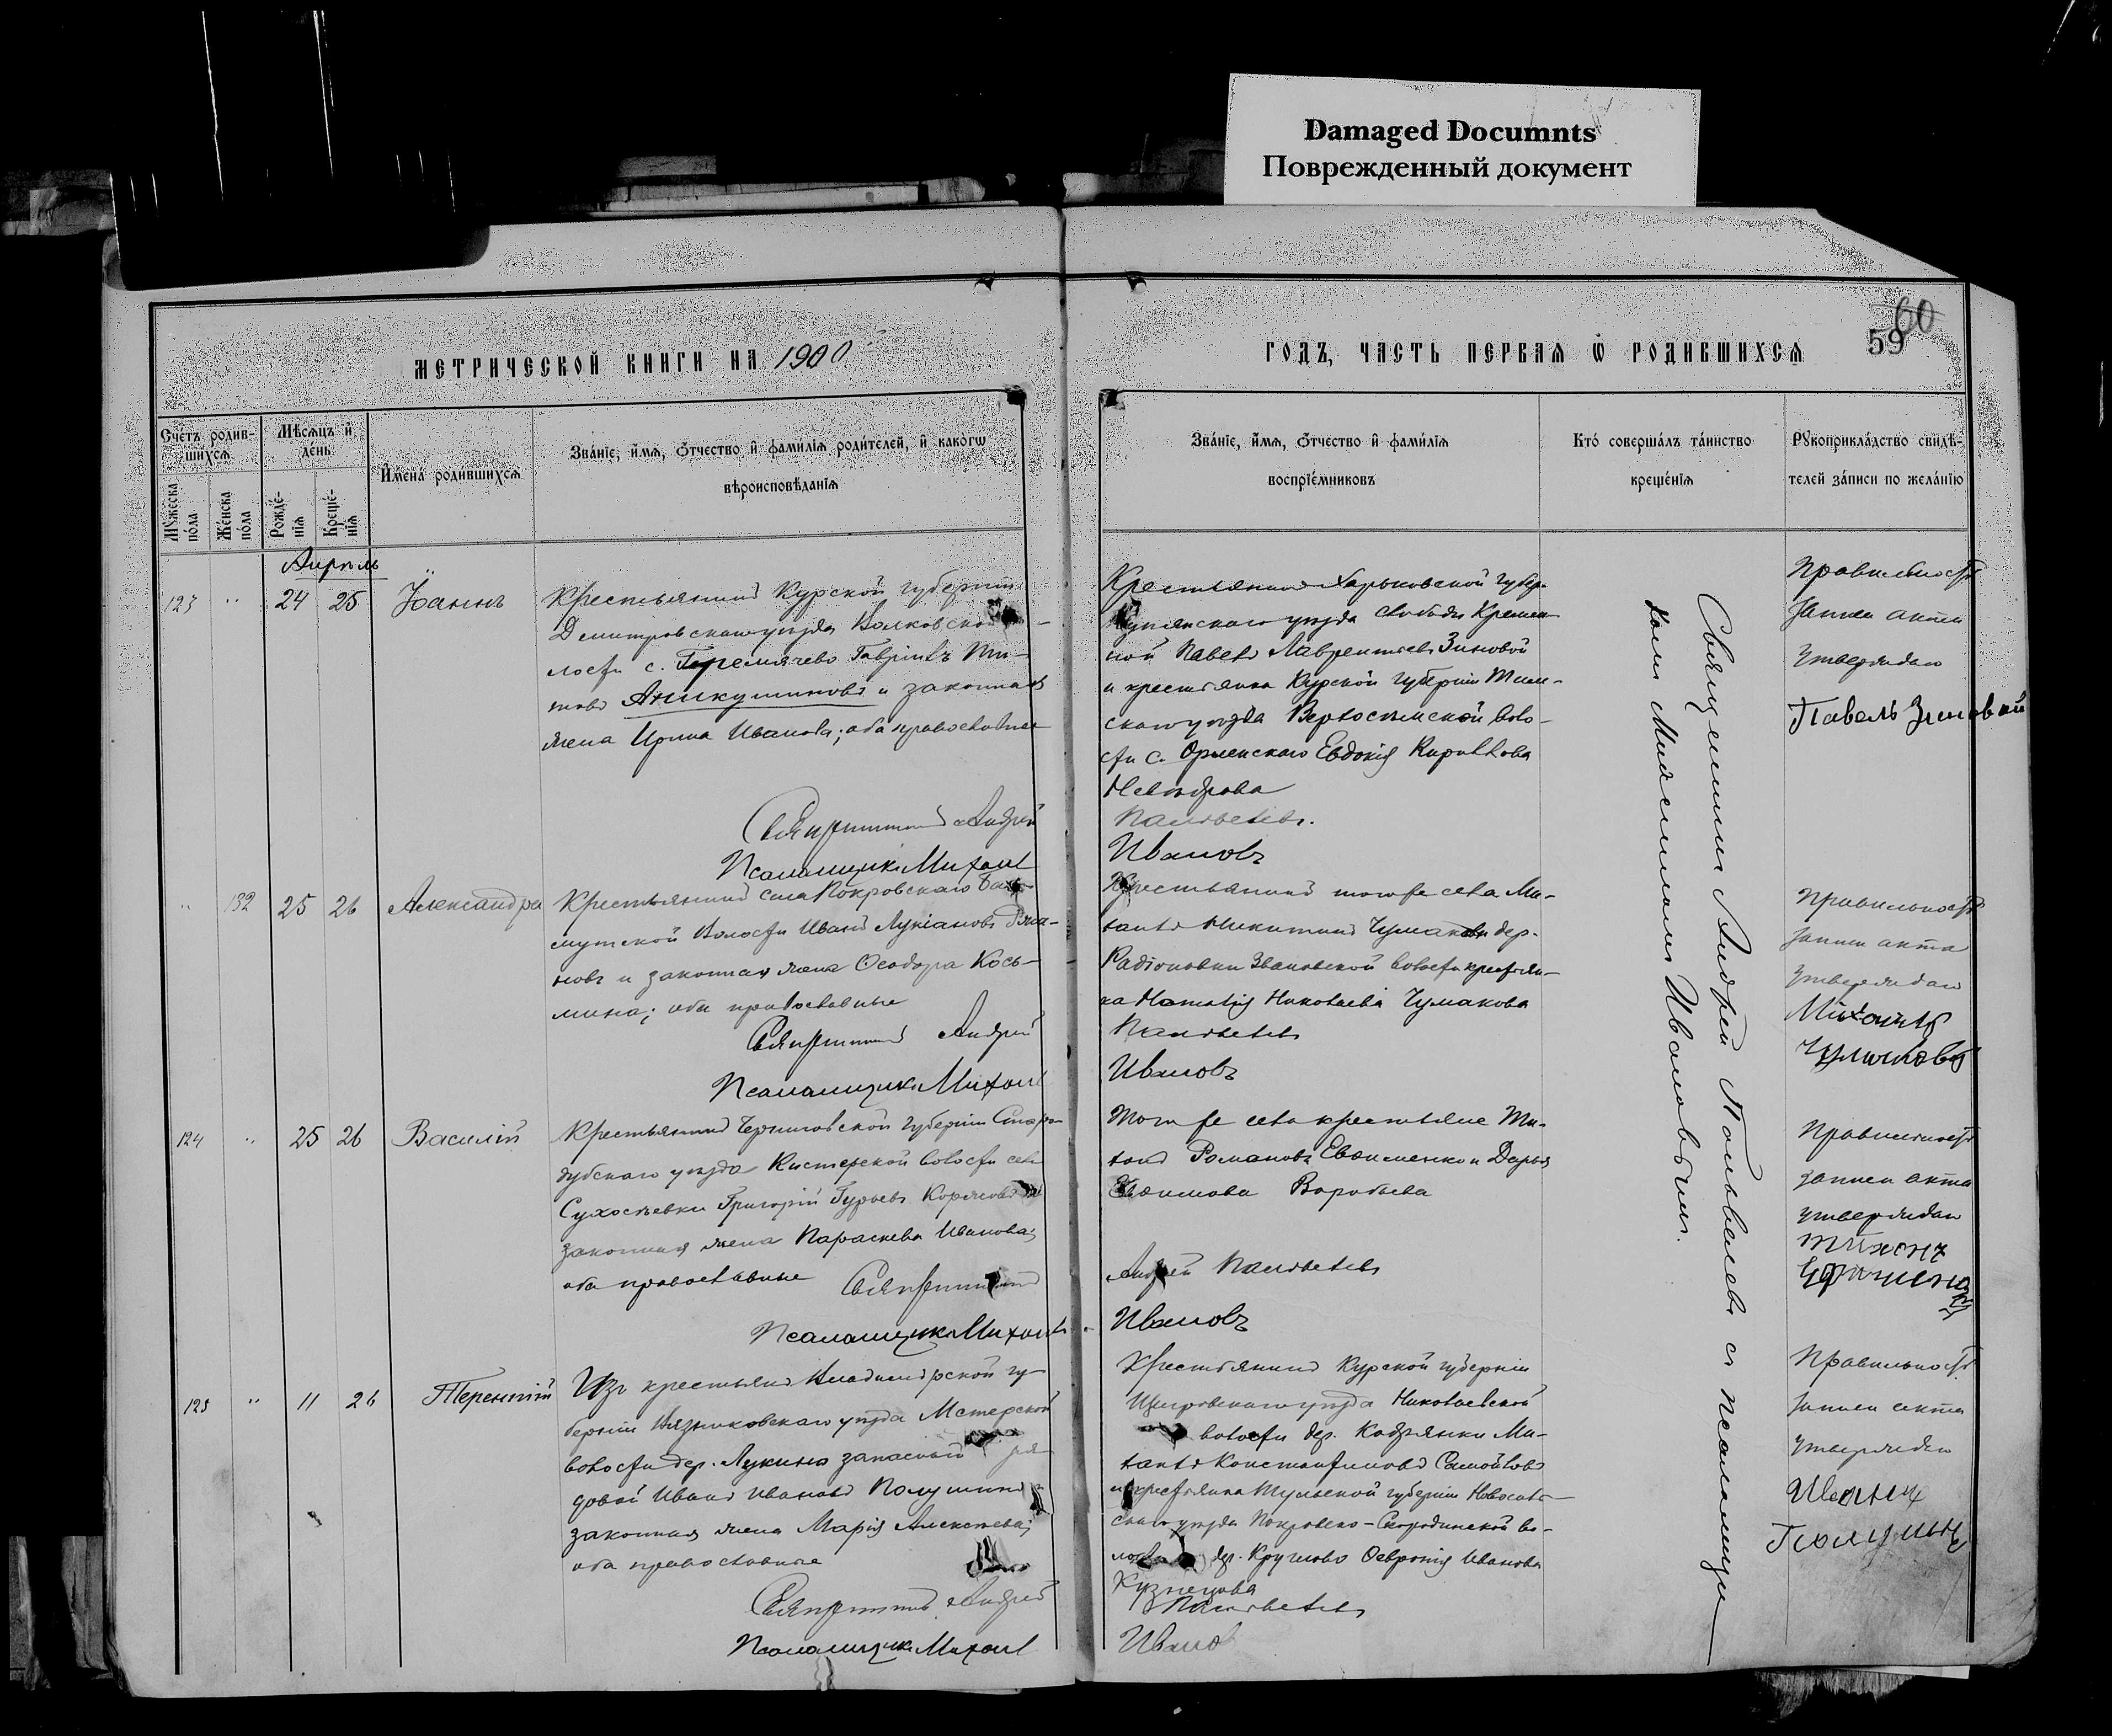 Damaged Documnts
Поврежденный документ
60
59
МЕТРИЧЕСКОЙ КНИГИ НА 1900
ГОДЪ, ЧАСТЬ ПЕРВАѦ Ѽ РОДИВШИХСѦ
Счетъ родив-
шихсѧ
Мѣсѧцъ и
день
Мꙋжеска
пола
Женска
пола
Рожде-
нїѧ
Креще-
нїѧ
Имена родившихсѧ
Званїе, имѧ, ѿчество и фамилїѧ родителей, и какогѡ
вѣроисповѣданїѧ
Званїе, имѧ, ѿчество и фамилїѧ
воспрїемниковъ
Кто совершалъ таинство
крещенїѧ
Рꙋкоприкладство свидѣ-
телей записи по желанїю
Апрѣль
123 " 24 25 Іоаннъ
Крестьянинъ Курской губерніи
Дмитровскаго уѣзда Волковской
лости с. Гремячево Гавріилъ Ти-
товъ Аникушиновъ и законная
жена Ирина Иванова; оба православные
Священникъ Андрей
Псаломщикъ Михаил
Крестьянинъ Харьковской губер.
Купянскаго уѣзда слободы Кремен-
ной Павелъ Лаврентьевъ Зиновой
и крестьянка Курской губерніи Тим-
скаго уѣзда Верхосемской воло-
сти с. Орлянскаго Евдокія Кириллова
Ивановъ
Правильность
записи акта
утверждаю
Павелъ Зиновой
" 132 25 26 Александра
Крестьянинъ села Покровскаго Бах-
мутской волости Иванъ Лукіановъ
новъ и законная жена Ѳеодора Кось-
мина; оба православные
Священникъ Андрей
Псаломщикъ Михаил
Крестьянинъ того же села Ми-
хаилъ Никитинъ Чумаковъ дер.
Радіоновки Звановской волости крестьян-
ка Наталія Николаева Чумакова
Ивановъ
Правильность
записи акта
утверждаю
Михаилъ
Чумаковъ
124 " 25 26 Василій
Крестьянинъ Черниговской губерніи Старо-
дубскаго уѣзда Кистерской волости села
Григорій Гурьевъ
законная жена Параскева Иванова;
оба православные Священникъ
Псаломщикъ Михаилъ
Того же села крестьяне Ти-
хонъ Романовъ Евѳименко и Дарья
Евѳимова Воробьева
Андрей
Ивановъ
Правильность
записи акта
утверждаю
Тихонъ
125 " 11 26 Терентій
Изъ крестьянъ Владимірской гу-
берніи Вязниковскаго уѣзда Мстерской
волости дер. Лукино запасный ря-
довой Иванъ Ивановъ Полушинъ и
законная жена Марія Алексѣева;
оба православные
Священникъ Андрей
Псаломщикъ Михаил
Крестьянинъ Курской губерніи
Щигровскаго уѣзда Николаевской
волости дер. Ми-
хаилъ Константиновъ Самойловъ
и крестьянка Тульской губерніи Новосиль-
скаго уѣзда Покровско-Скородинской во-
лости дер. Круглово Ѳевронія Иванова
Кузнецова
Иванов
Правильность
записи акта
утверждаю
Иванъ
Полушинъ
Священникъ Андрей с псаломщи-
комъ Михаиломъ Ивановымъ.